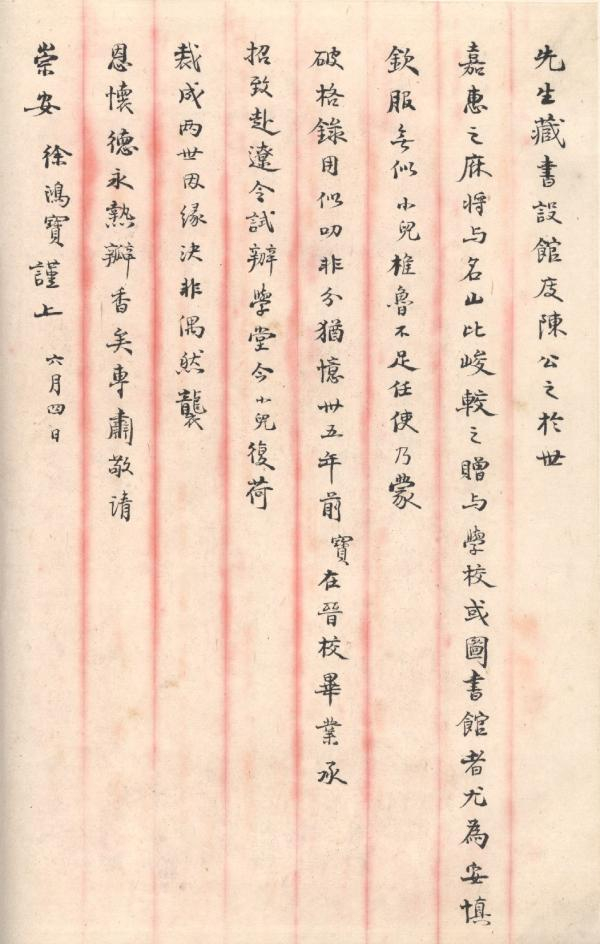 先生藏書設館庋陳公之於世
嘉惠之庥將与名山比峻較之贈与學校或圖書館者尤為安慎
欽服無似小兒椎魯不足任使乃蒙
破格錄用似叨非分猶憶卅五年前寶在晉校畢業承
招致赴遼令試辦學堂今小兒復荷
裁成兩世因緣決非偶然襲
恩懷德永熱瓣香矣專肅敬請
崇安 徐鴻寶謹上 六月四日